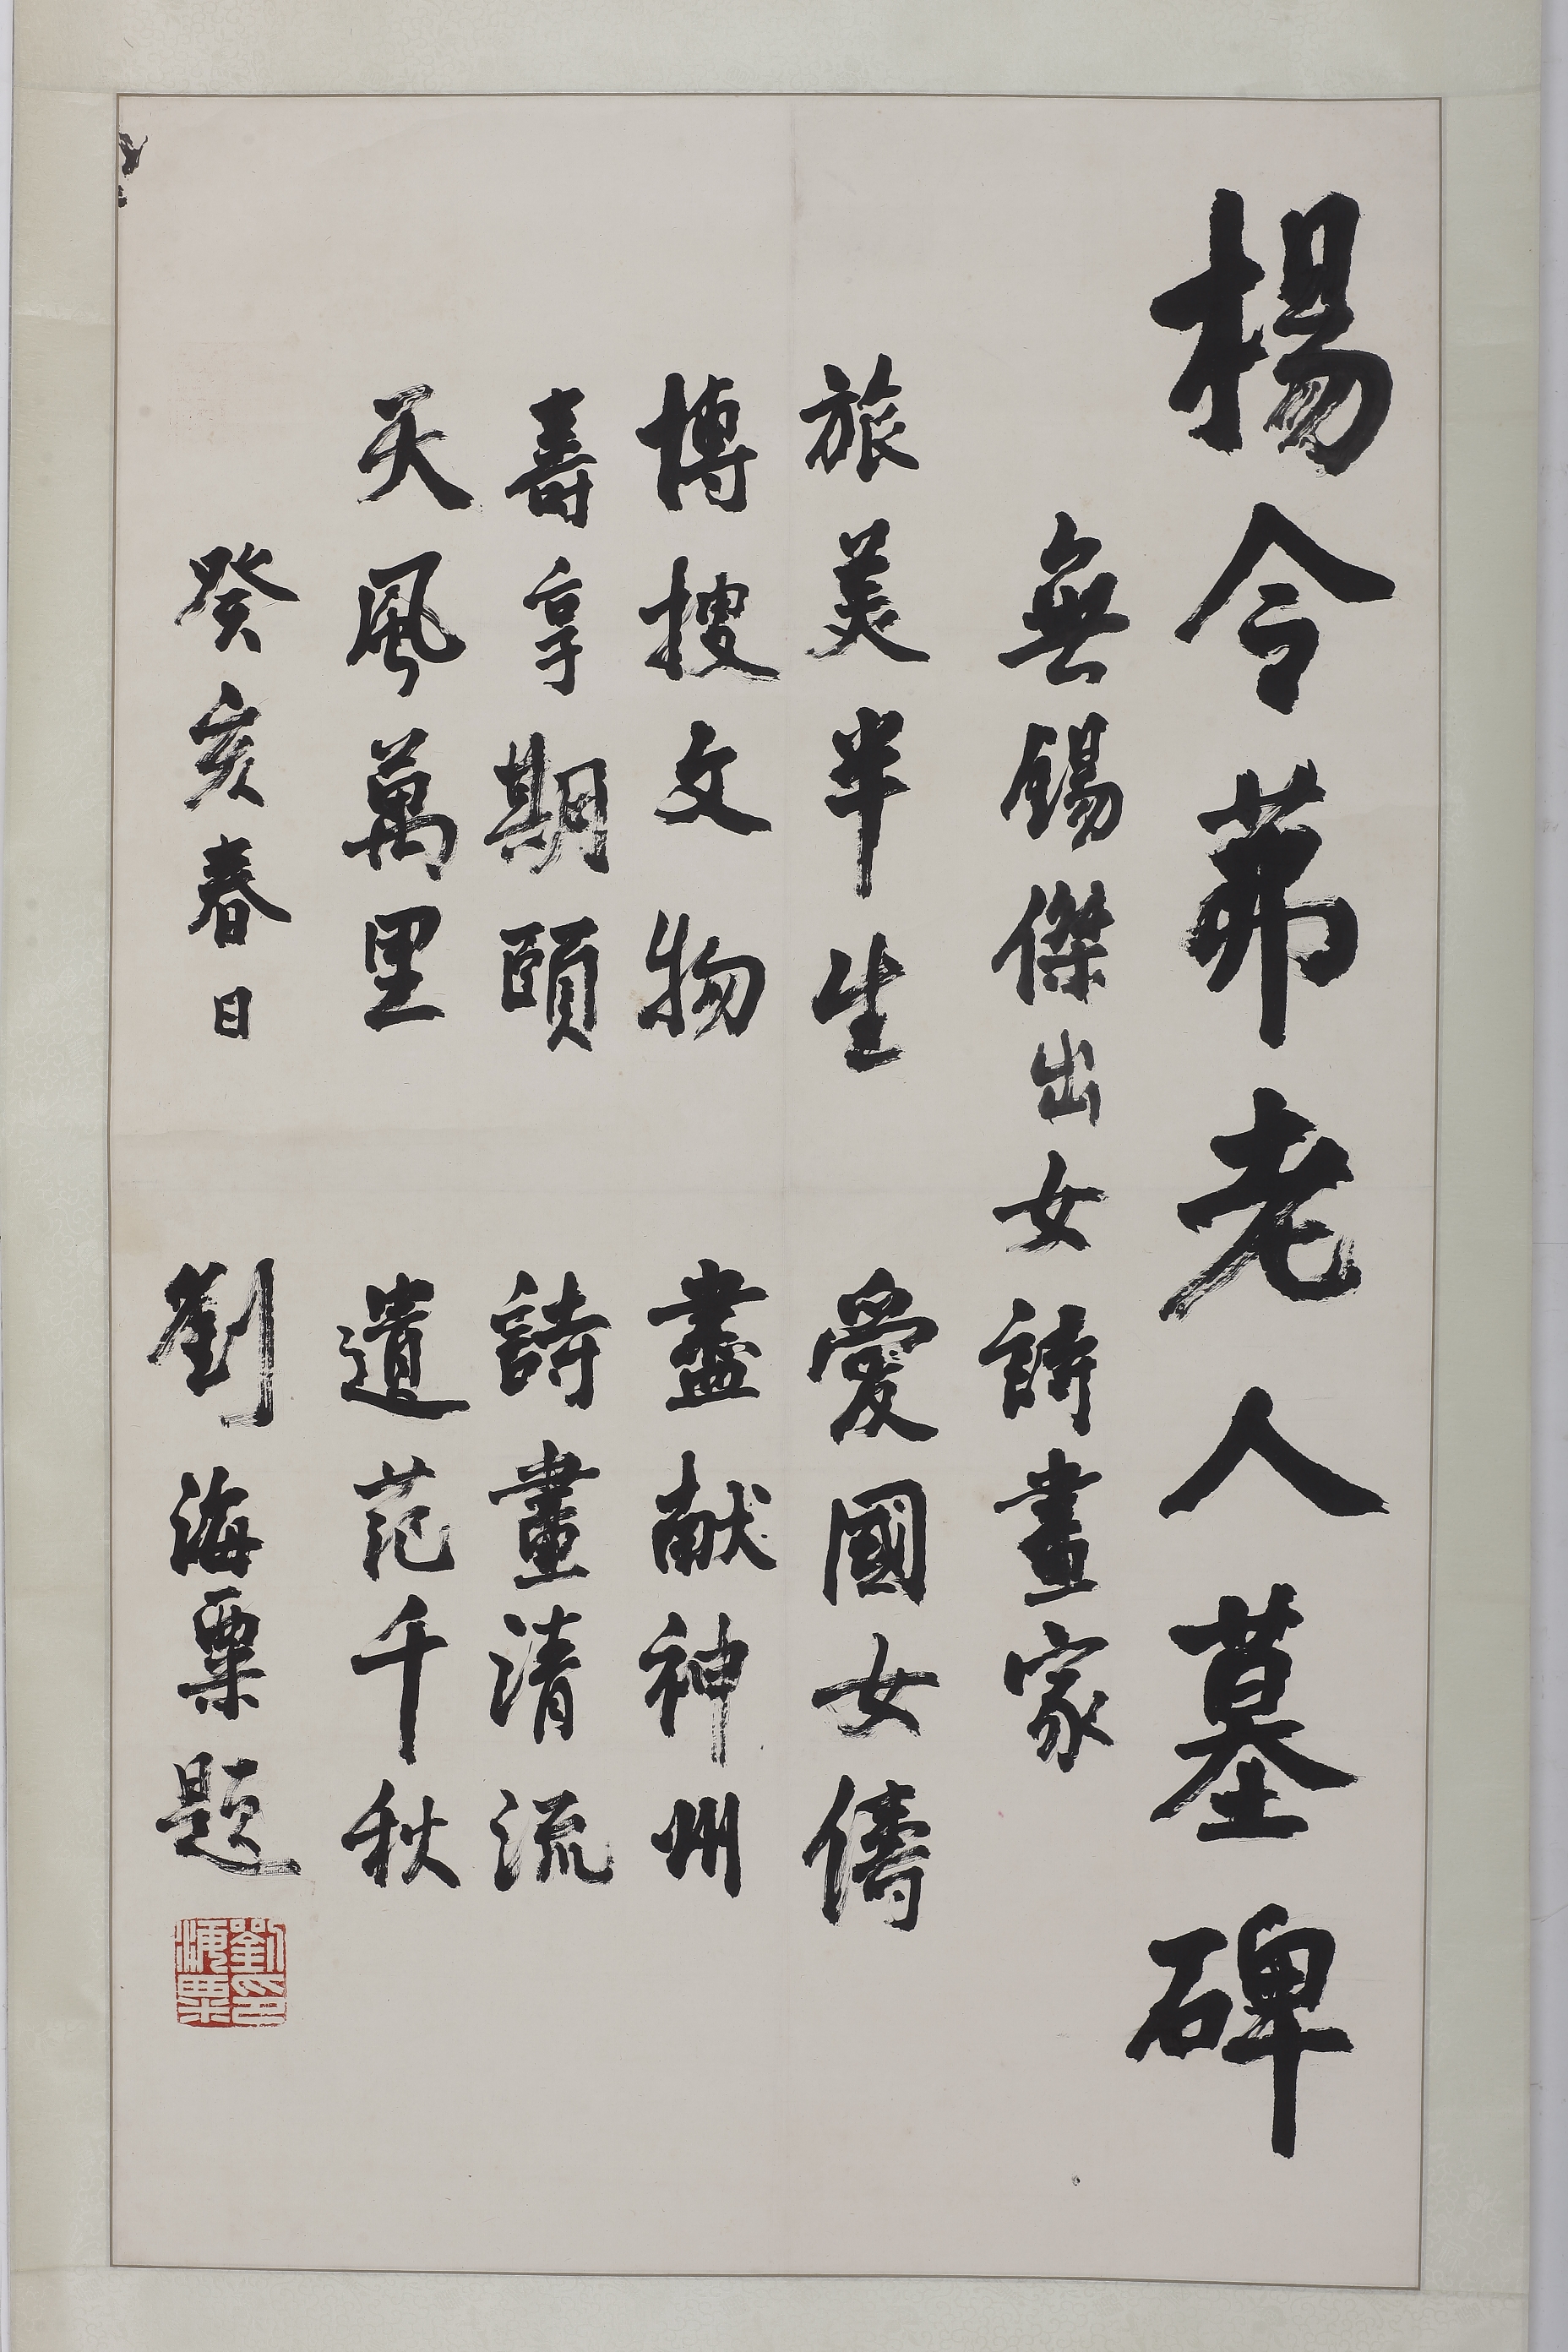 楊令茀老人墓碑
無錫傑出女詩畫家
旅美半生 愛國女儔
博搜文物 盡献神州
壽享期頤 詩畫清流
天風萬里 遺范千秋
癸亥春日 劉海粟題
劉海粟印